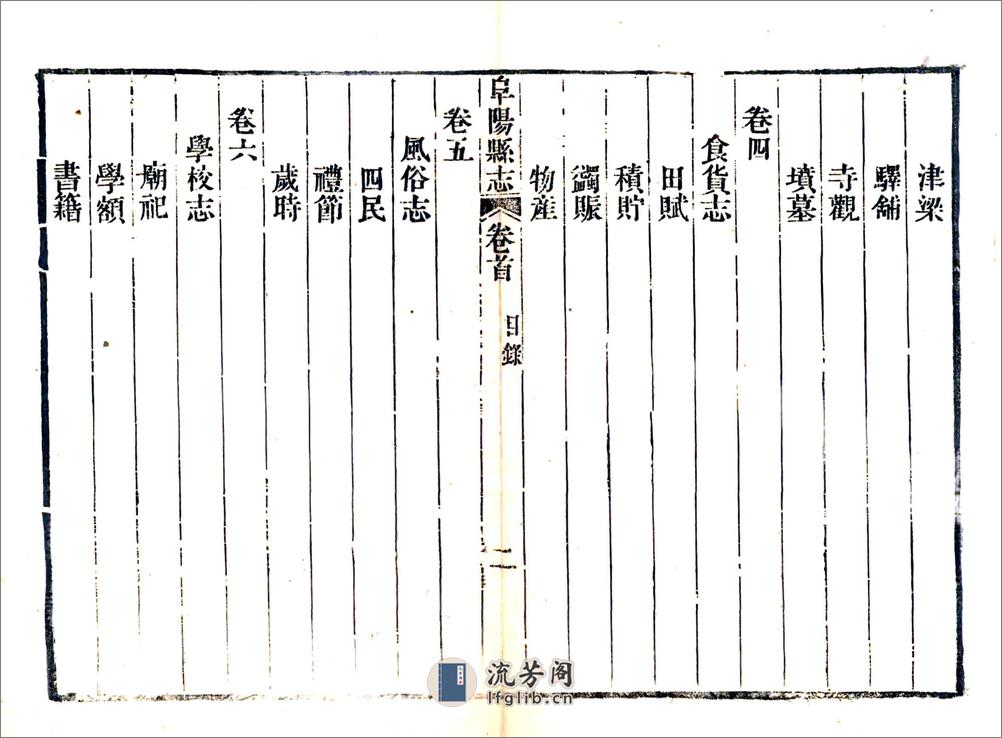 津梁
驛舖
寺觀
墳墓
卷四
食貨志
田賦
積貯
蠲賑
物産
阜陽縣志
卷首
目錄
二
卷五
風俗志
四民
禮節
歲時
卷六
學校志
廟祀
學額
書籍
流芳阁
lfglib.cn